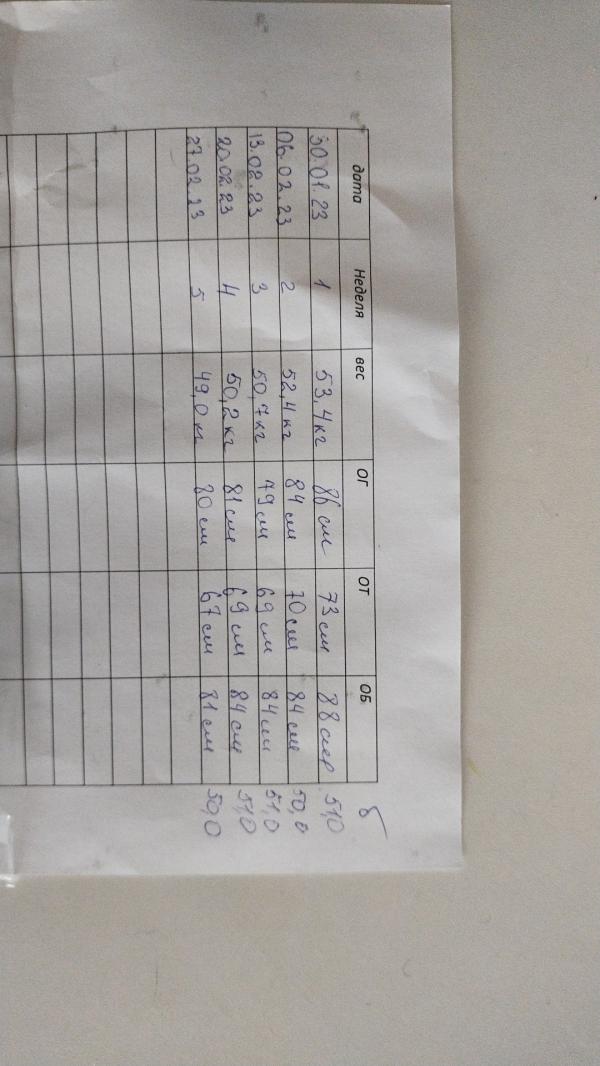 дата Неделя вес ОГ ОТ ОБ б
30.01.23 1 53,4кг 86 см 73 см 88 смер 51,0
06.02.23 2 52,4 кг 84 см 70 см 84 см 50,0
13.02.23 3 50,7кг 79 см 69 см 84 см 51,0
20.02.23 4 50,2 кг 81 см 69 см 84 см 51,0
27.02.23 5 49,0 кг 80 см 67 см 81 см 50,0